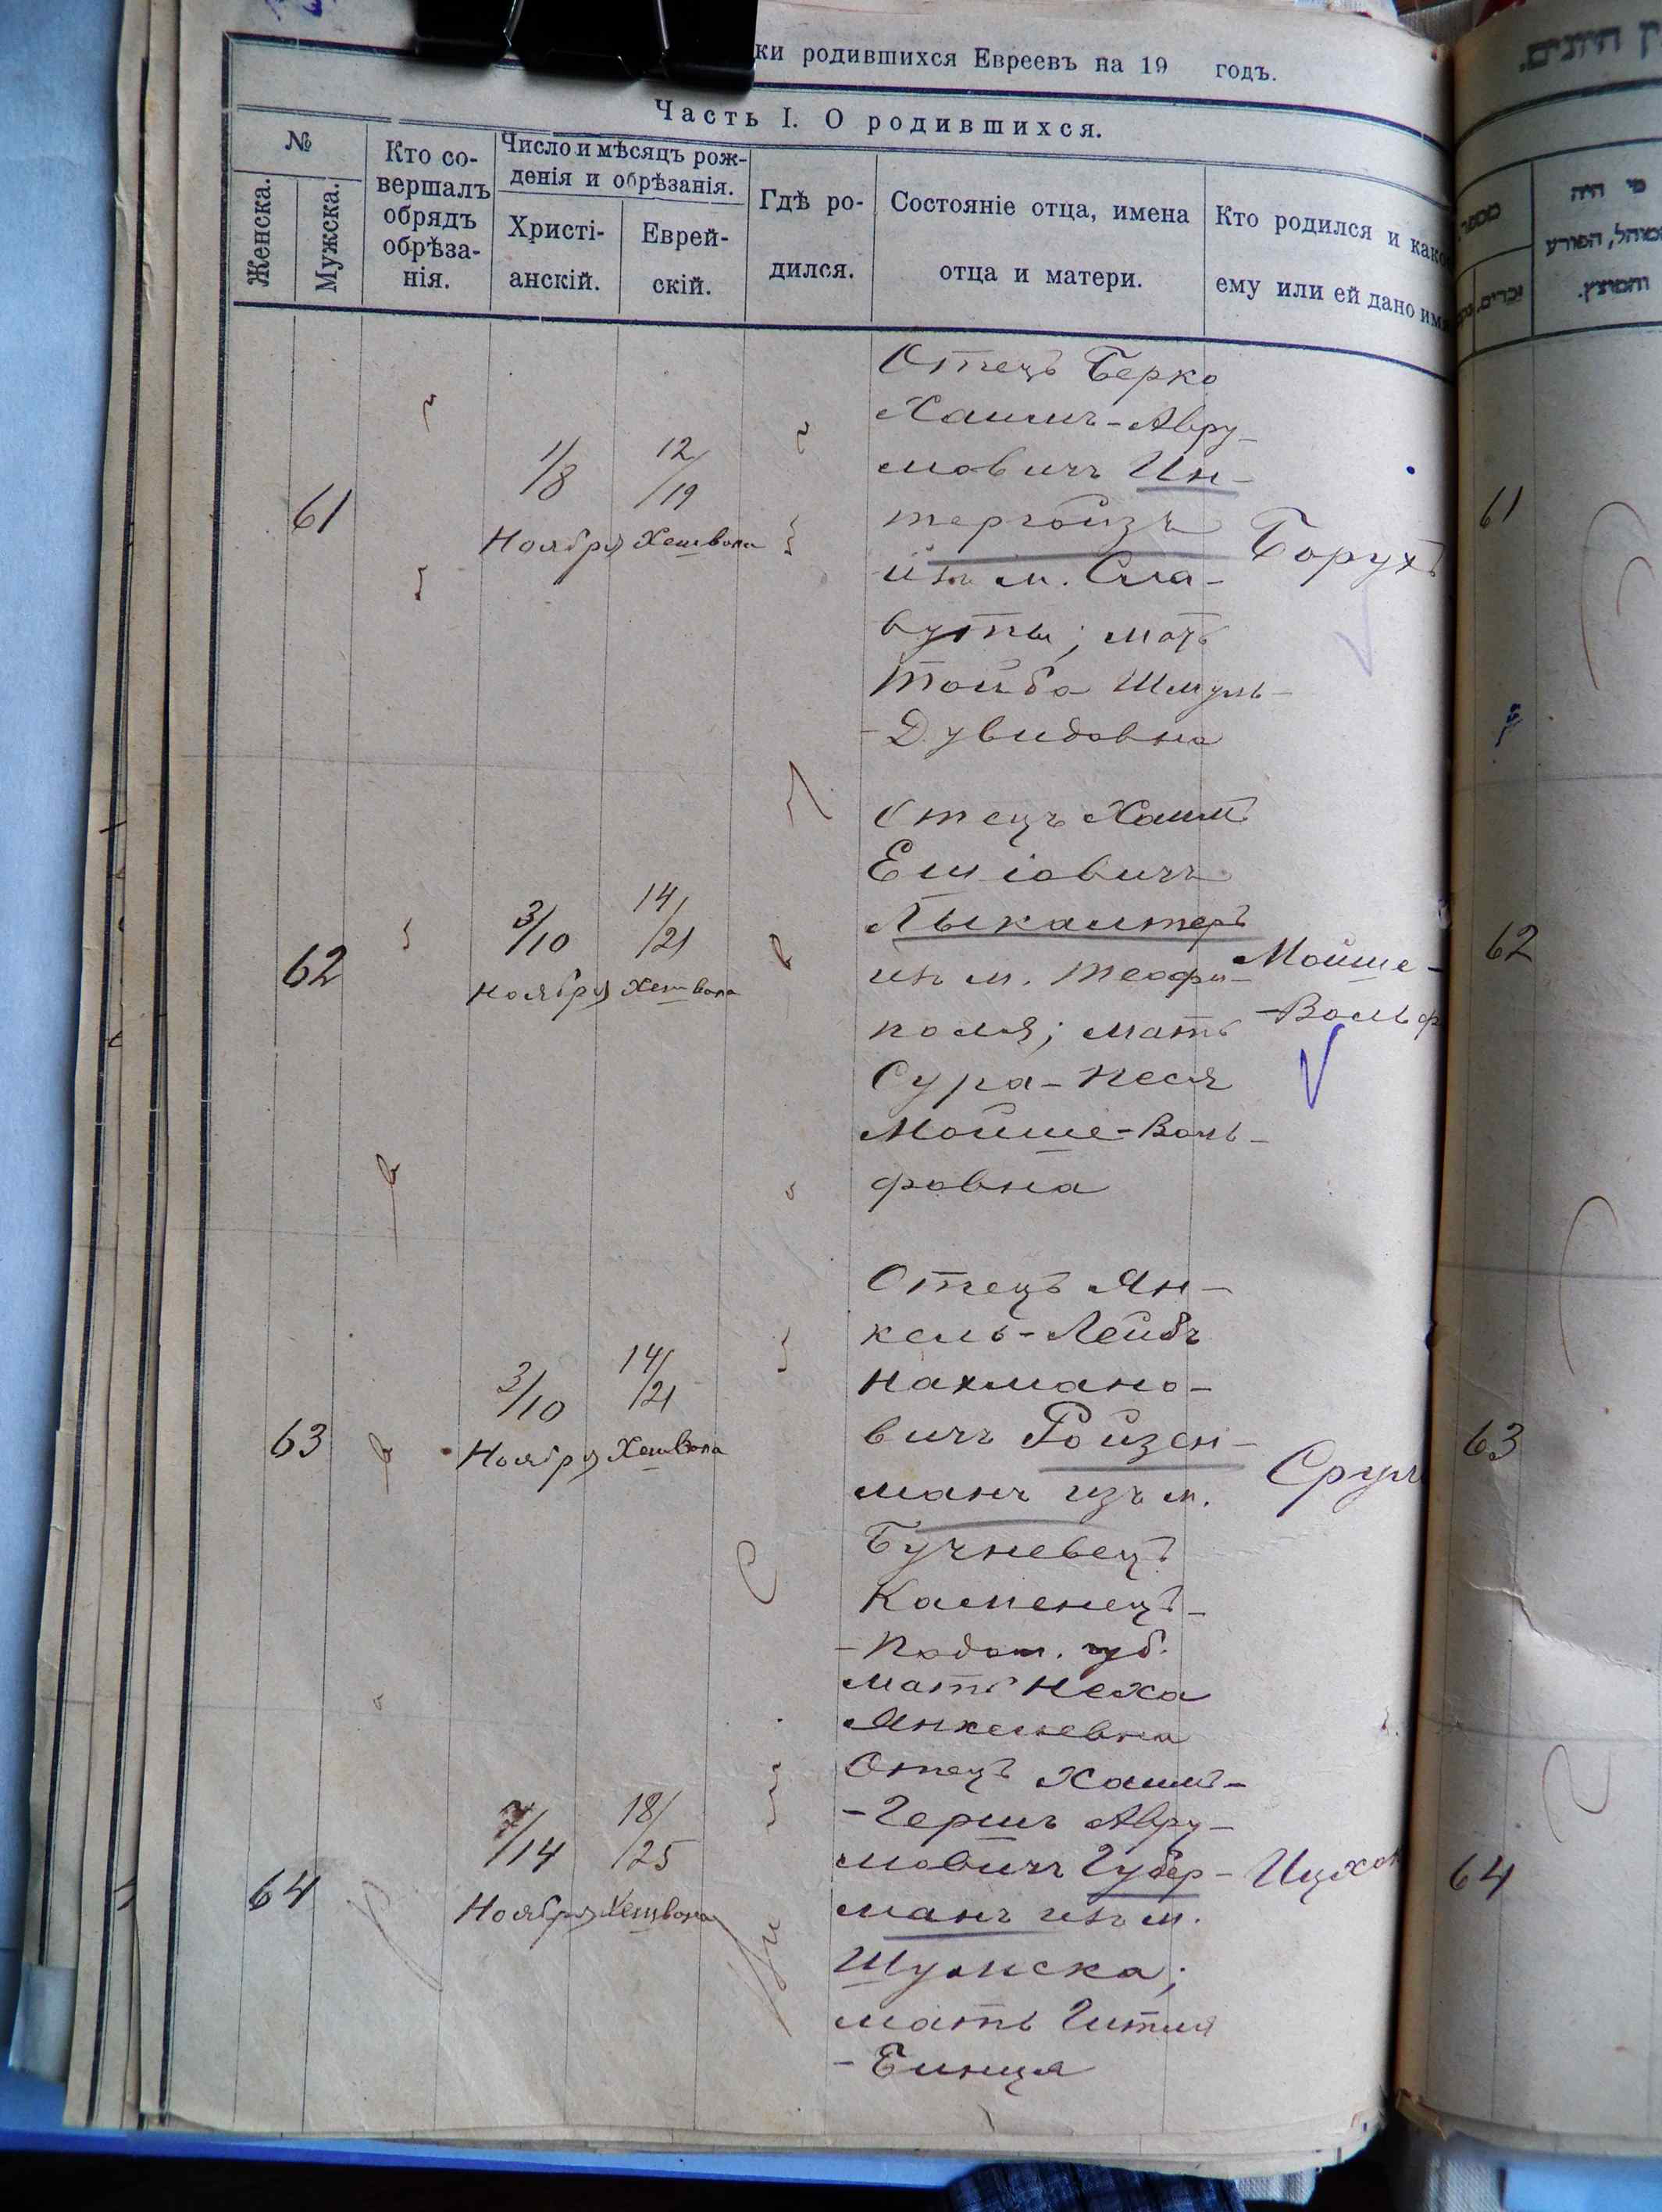 ки родившихся Евреевъ на 19 годъ.
Часть I. О родившихся.
№
Женска.
Мужска.
Кто со-
вершалъ
обрядъ
обрѣза-
нія.
Число и мѣсяцъ рож-
денія и обрѣзанія.
Христі-
анскій.
Еврей-
скій.
Гдѣ ро-
дился.
Состояніе отца, имена
отца и матери.
Кто родился и како
ему или ей дано имя
מספר
זכרים.
מי היה
המוהל, הפורע
והמוצץ.
61
1/8
Ноября
12/19
Хешвона
Отецъ Берко
Хаимъ-Авру-
мовичъ Ин-
тергойзъ
изъ м. Сла-
вуты; мать
Тойба Шмуль-
-Дувидовна
Борухъ
61
62
3/10
Ноября
14/21
Хешвона
Отецъ Хаимъ
Ешіовичъ
Лыкамтеръ
изъ м. Теофи-
поля; мать
Сура-Песя
Мойше-Воль-
фовна
Мойше-
-Вольф
62
63
3/10
Ноября
14/21
Хешвона
Отецъ Ян-
кель-Лейбъ
Нахмано-
вичъ Ройзен-
манъ изъ м.
Бучневецъ
Каменецъ-
-Подол. губ.
мать Неха
Янкелевна
Срул
63
64
7/14
Ноября
18/25
Хешвона
Отецъ Хаимъ-
-Гершъ Авру-
мовичъ Губер-
манъ изъ м.
Шумска;
мать Гитля
-Бинця
Ицхок
64